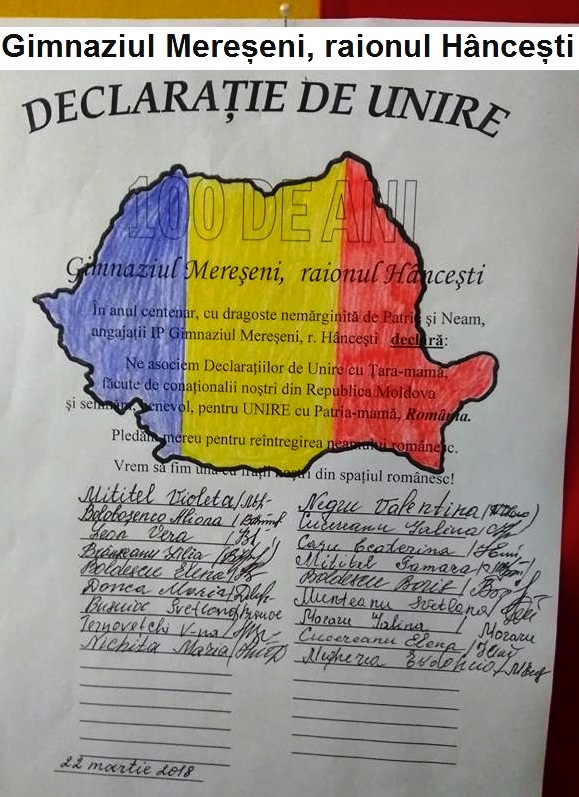 Gimnaziul Mereșeni, raionul Hâncești
DECLARAȚIE DE UNIRE
100 DE ANI
Gimnaziul Mereșeni, raionul Hâncești
În anul centenar, cu dragoste nemărginită de Patrie și Neam,
angajații IP Gimnaziul Mereșeni, r. Hâncești declară:
Ne asociem Declarațiilor de Unire cu Țara-mamă,
făcute de conaționalii noștri din Republica Moldova
și semnăm, benevol, pentru UNIRE cu Patria-mamă, România.
Pledăm mereu pentru reîntregirea neamului românesc.
Vrem să fim una cu frații noștri din spațiul românesc!
Mititel Violeta
Bolobosenco Aliona
Leon Vera
Brânzeanu Lilia
Boldescu Elena
Donca Maria
Svetlana
Ternovetchi V-na
Nichita Maria
Negru Valentina
Cucereanu Galina
Ecaterina
Mititel Tamara
Boldescu Boris
Munteanu Svetlana
Moraru Galina / Moraru
Cucereanu Elena
Eudochia
22 martie 2018